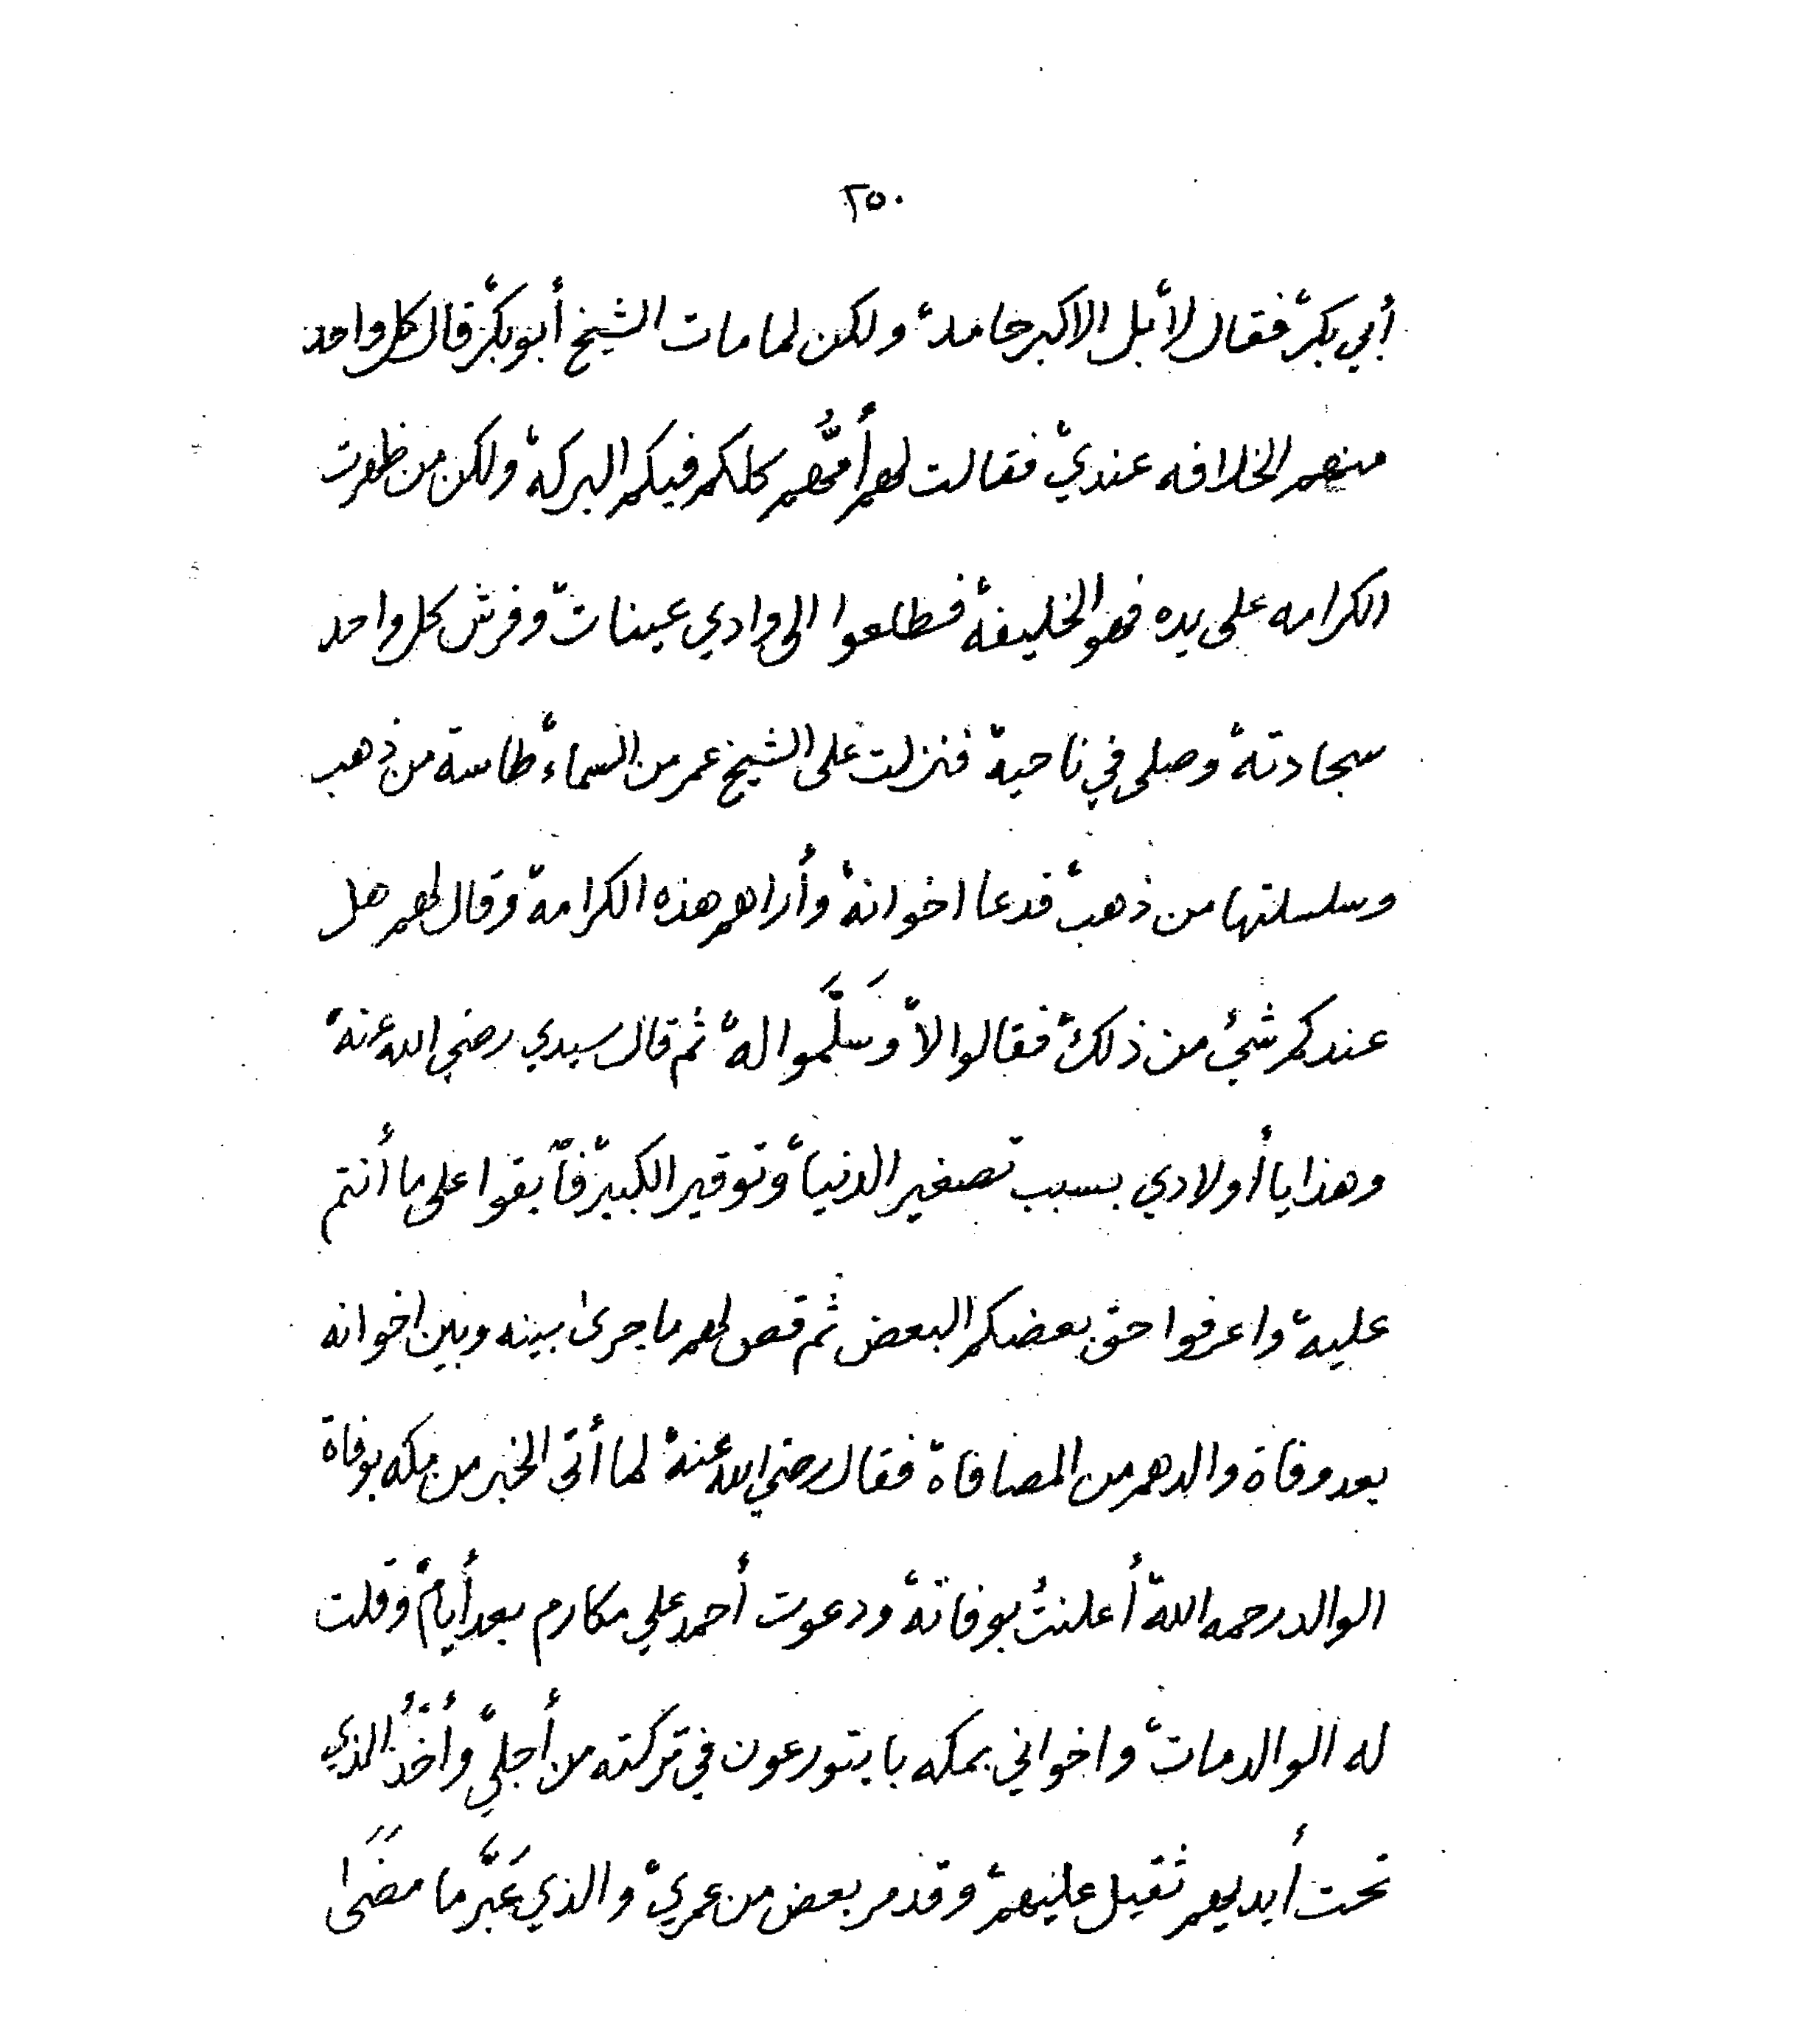 ٢٥٠
أبي بكر، فقال لا، بل الاكبر حامد، ولكن لما مات الشيخ أبو بكر، قال كل واحد
منهم الخلافه عندي، فقالت لهم أمُّهم كلكم فيكم البركة، ولكن من ظهرت
الكرامه على يده فهو الخليفة، فطلعوا الى وادي عينات، وفرش كل واحد
سجادته، وصلى في ناحية، فنزلت على الشيخ عمر من السماء، طاسة من ذهب
وسلسلتها من ذهب، فدعا اخوانه، وأراهم هذه الكرامة، وقال لهم هل
عندكم شيٌ من ذلك، فقالوا لا، وَسَلَّموا له، ثم قال سيدي رضي الله عنه،
وهذا يا أولادي بسبب تصغير الدنيا، وتوقير الكبير، فابقوا على ما أنتم
عليه، واعرفوا حق بعضكم البعض، ثم قص لهم ما جرى بينه وبين اخوانه
بعد وفاة والدهم من المصافاة، فقال رضي الله عنه، لما أتى الخبر من مكه بوفاة
الوالد رحمه الله، أعلنتُ بوفاته، ودعوت أحمد علي مكارم بعد أيام، وقلت
له الوالد مات، واخواني بمكه با يتورعون في تركته من أجلي، وأخْذُ الذي
تحت أيديهم ثقيل عليهم، وقدمر بعض من عمري، والذي غَبَّر ما مضَى